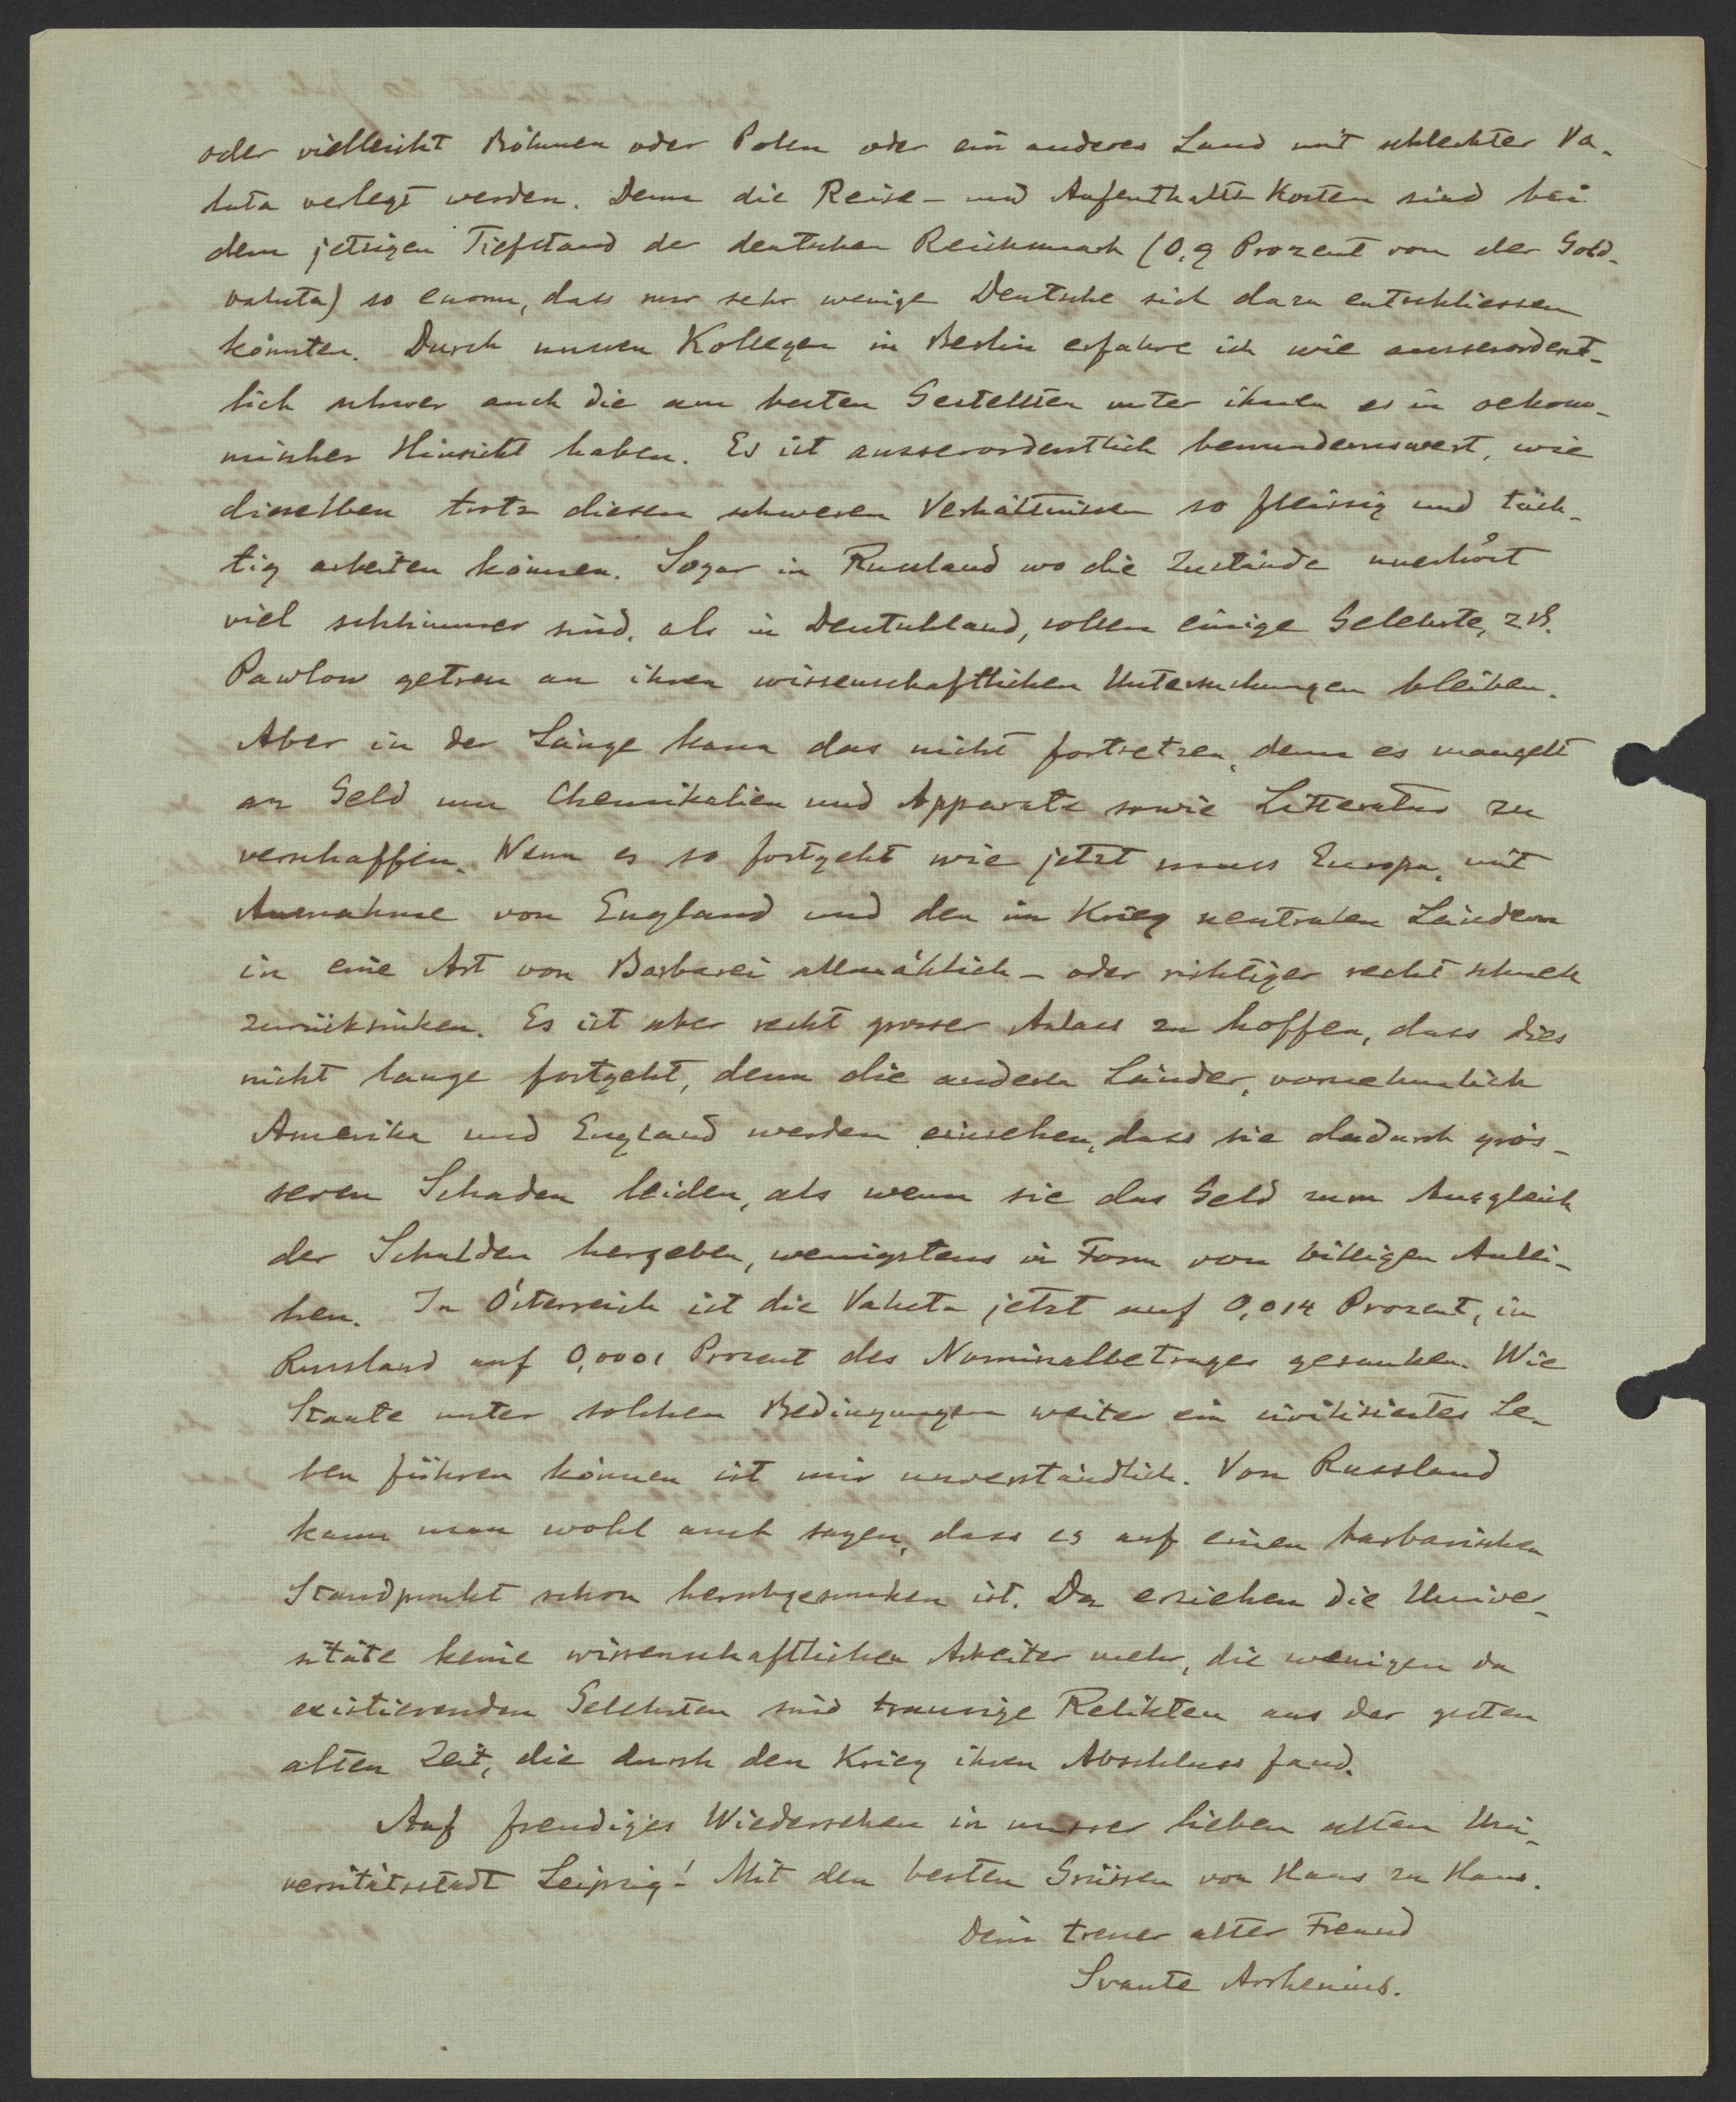 oder vielleicht Böhmen oder Polen oder ein anderes Land mit schlechter Va-
luta verlegt werden. Denn die Reise- und Aufenthalts-Kosten sind bei
dem jetzigen Tiefstand der deutschen Reichsmark (0,9 Prozent von der Gold-
valuta) so enorm, dass nur sehr wenige Deutsche sich dazu entschliessen
könnten. Durch unsern Kollegen in Berlin erfahre ich wie ausserordent-
lich schwer auch die am besten Gestellten unter ihnen es in oekono-
mischer Hinsicht haben. Es ist ausserordentlich bewundernswert, wie
dieselben trotz diesen schweren Verhältnissen so fleissig und tüch-
tig arbeiten können. Sogar in Russland wo die Zustände unerhört
viel schlimmer sind, als in Deutschland, sollen einige Gelehrte, z.B.
Pawlow getreu an ihren wissenschaftlichen Untersuchungen bleiben.
Aber in der Länge kann das nicht fortsetzen, denn es mangelt
an Geld um Chemikalien und Apparate sowie Litteratur zu
verschaffen. Wenn es so fortgeht wie jetzt muss Europa, mit
Ausnahme von England und den im Krieg neutralen Ländern
in eine Art von Barbarei allmählich - oder richtiger recht schnell
zurücksinken. Es ist aber recht grosser Anlass zu hoffen, dass dies
nicht lange fortgeht, denn die anderen Länder, vornehmlich
Amerika und England werden einsehen, dass sie dadurch grös-
seren Schaden leiden, als wenn sie das Geld zum Ausgleich
der Schulden hergeben, wenigstens in Form von billigen Anlei-
hen. In Österreich ist die Valuta jetzt auf 0,014 Prozent, in
Russland auf 0,0001 Prozent des Nominalbetrages gesunken. Wie
Staate unter solchen Bedingungen weiter ein civilisiertes Le-
ben führen können ist mir unverständlich. Von Russland
kann man wohl auch sagen, dass es auf einen barbarischen
Standpunkt schon herabgesunken ist. Da erziehen die Univer-
sitäte keine wissenschaftlichen Arbeiter mehr, die wenigen da
existierenden Gelehrten sind traurige Relikten aus der guten
alten Zeit, die durch den Krieg ihren Abschluss fand.
Auf freudiges Wiedersehen in unserer lieben alten Uni-
versitätsstadt Leipzig! Mit den besten Grüssen von Haus zu Haus.
Dein treuer alter Freund
Svante Arrhenius.